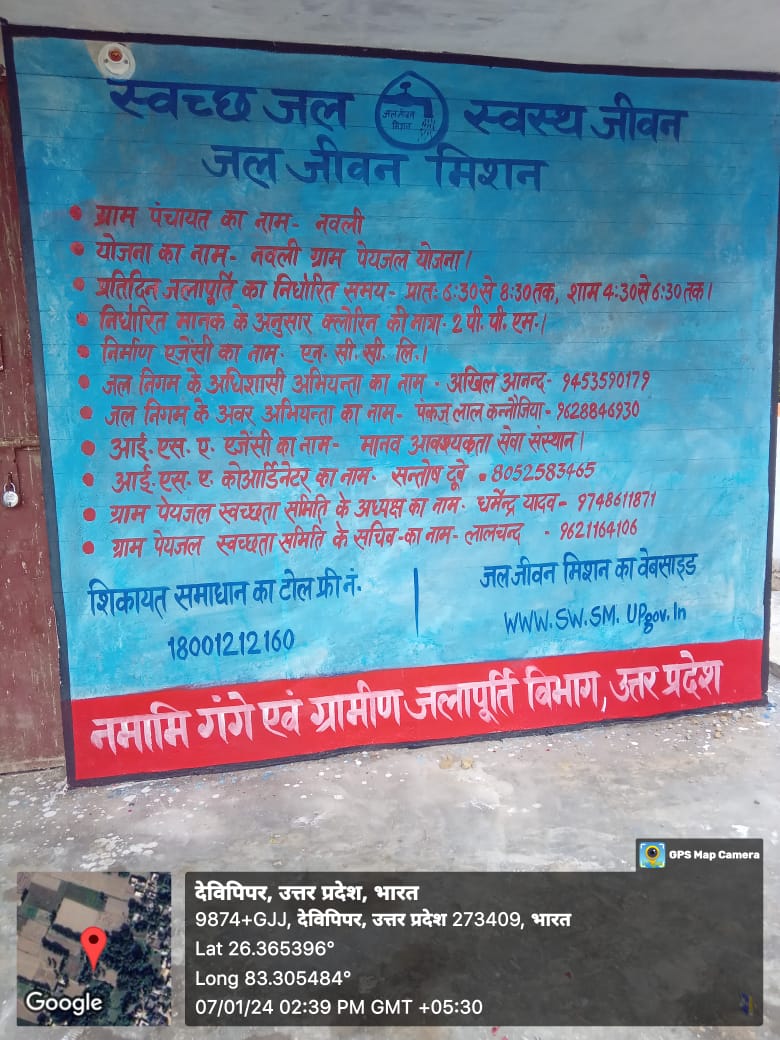 स्वच्छ जल जल जीवन मिशन स्वस्थ जीवन
जल जीवन मिशन
• ग्राम पंचायत का नाम- नवली
• योजना का नाम- नवली ग्राम पेयजल योजना।
• प्रतिदिन जलापूर्ति का निर्धारित समय- प्रातः 6:30 से 8:30 तक, शाम 4:30 से 6:30 तक।
• निर्धारित मानक के अनुसार क्लोरिन की मात्रा- 2 पी. पी. एम.।
• निर्माण एजेंसी का नाम- एन. सी. सी. लि.।
• जल निगम के अधिशासी अभियन्ता का नाम - अखिल आनन्द- 9453590179
• जल निगम के अवर अभियन्ता का नाम- पंकज लाल कन्नौजिया- 9628846930
• आई. एस. ए. एजेंसी का नाम- मानव आवश्यकता सेवा संस्थान।
• आई. एस. ए. कोआर्डिनेटर का नाम- सन्तोष दूबे - 8052583465
• ग्राम पेयजल स्वच्छता समिति के अध्यक्ष का नाम- धर्मेन्द्र यादव- 9748611871
• ग्राम पेयजल स्वच्छता समिति के सचिव-का नाम- लालचन्द - 9621164106
शिकायत समाधान का टोल फ्री नं.
18001212160
जल जीवन मिशन का वेबसाइड
WWW.SW.SM. UPgov.In
नमामि गंगे एवं ग्रामीण जलापूर्ति विभाग, उत्तर प्रदेश
GPS Map Camera
देविपिपर, उत्तर प्रदेश, भारत
9874+GJJ, देविपिपर, उत्तर प्रदेश 273409, भारत
Lat 26.365396°
Long 83.305484°
07/01/24 02:39 PM GMT +05:30
Google